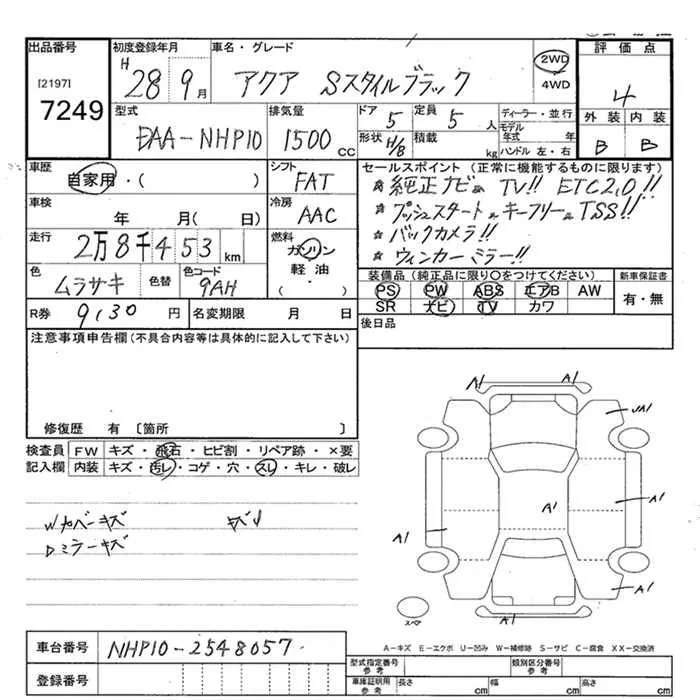 出品番号 初度登録年月 車名・グレード 評価点
[2197]
7249
H28 9月 アクア Sスタイルブラック 2WD 4WD 4
型式 排気量 ドア 5 定員 5人 ディーラー・並行 外装 内装
DAA-NHP10 1500cc 形状 H/B 積載 kg モデル年式 年 ハンドル 左・右 B B
車歴 自家用・( ) シフト FAT セールスポイント (正常に機能するものに限ります)
☆純正ナビ TV!! ETC2.0!!
車検 年 月( 日) 冷房 AAC ☆プッシュスタート キーフリー TSS!!
走行 2万8千453km 燃料 ガソリン 軽油・( ) ☆バックカメラ!!
☆ウィンカーミラー!!
色 ムラサキ 色替 色コード 9AH 装備品 (純正品に限り〇をつけてください) 新車保証書
PS PW ABS エアB AW 有・無
SR ナビ TV カワ
R券 9130円 名変期限 月 日 後日品
注意事項申告欄 (不具合内容等は具体的に記入して下さい)
修復歴 有 〔箇所 〕
検査員 FW キズ・飛石・ヒビ割・リペア跡・×要
記入欄 内装 キズ・汚レ・コゲ・穴・スレ・キレ・破レ
Wカバーキズ
Dミラーキズ
A1 A1
A1
A1 A1 A1
A1
スペア
A-キズ E-エクボ U-凹み W-補修跡 S-サビ C-腐食 XX-交換済
車台番号 NHP10-2548057
登録番号
型式指定番号 参考 類別区分番号 参考
車庫証明用 参考 長さ cm 幅 cm 高さ cm